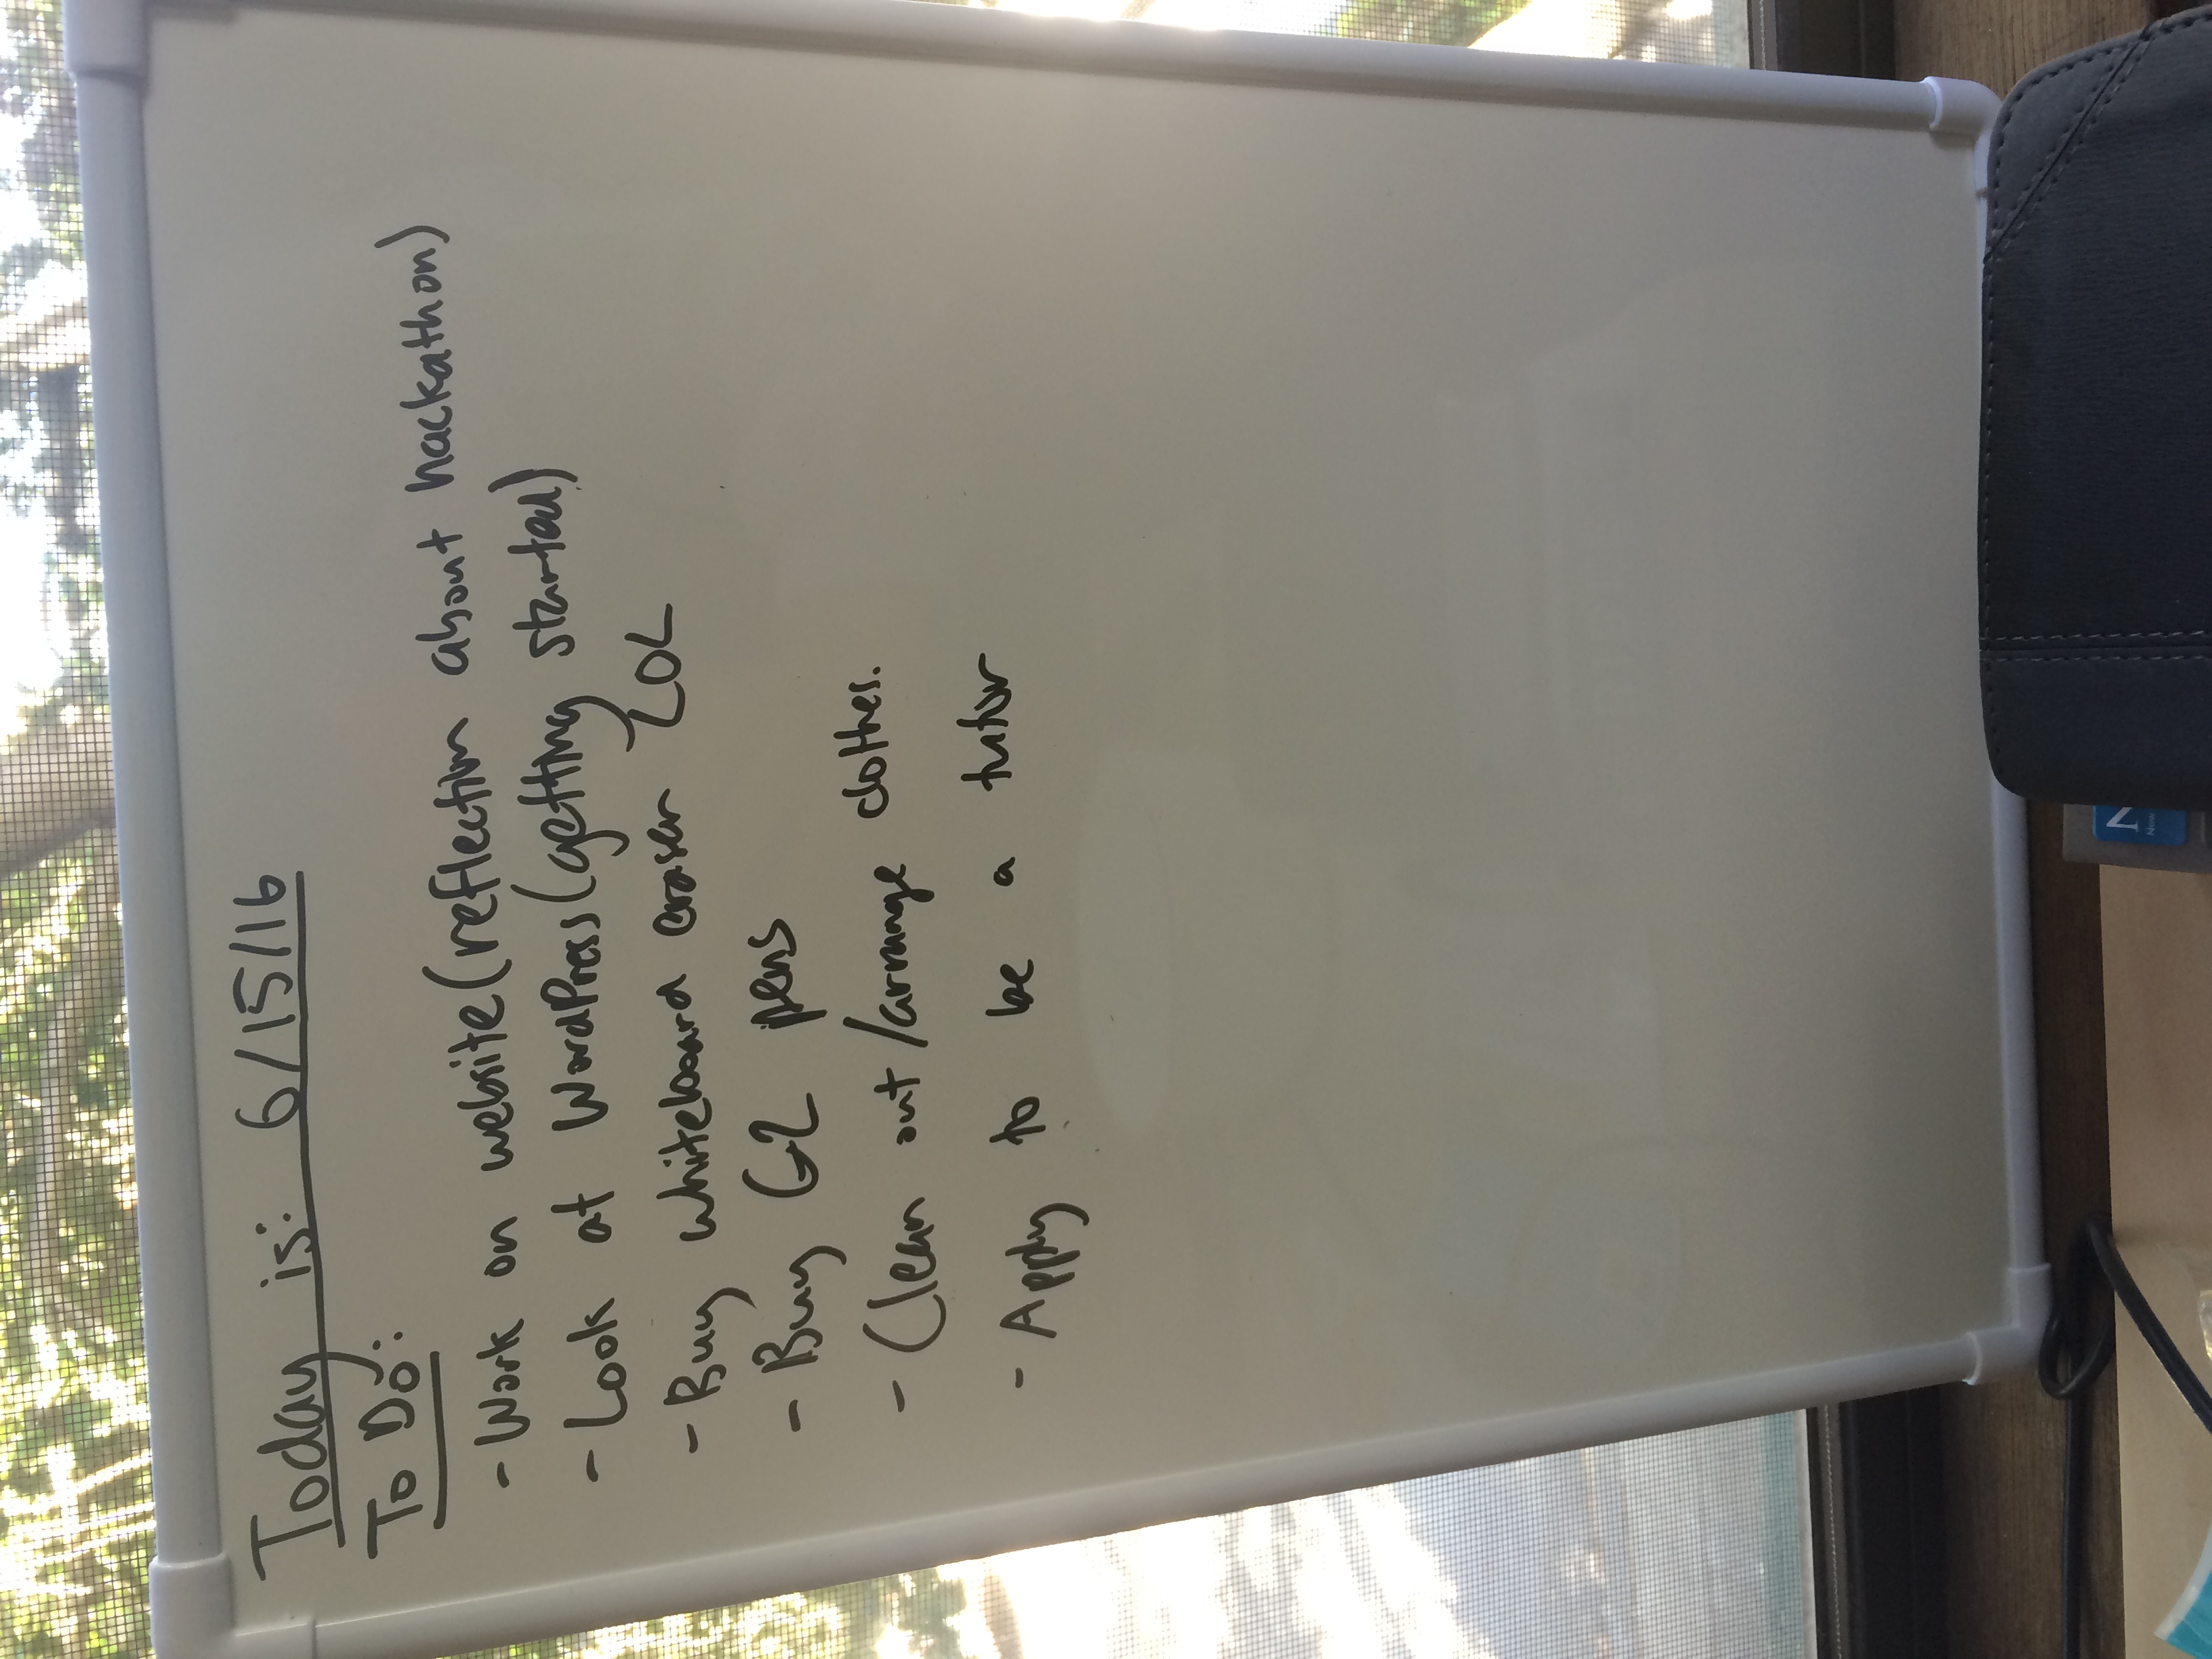 Today is: 6/15/16
To Do:
- Work on website (reflection about hackathon)
- Look at WordPress (getting started)
- Buy whiteboard eraser LOL
- Buy G2 pens
- Clean out /arrange clothes.
- Apply to be a tutor
N
New